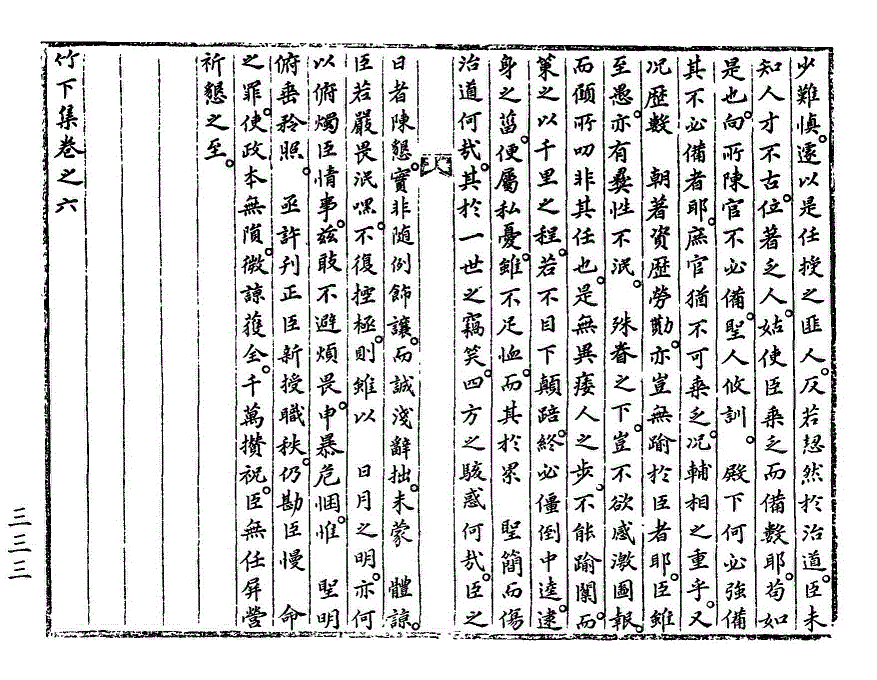 少難愼。遽以是任授之匪人。反若恝然於治道。臣未
知人才不古。位著乏人。姑使臣乘乏而備數耶。苟如
是也。向所陳官不必備。聖人攸訓。 殿下何必強備
其不必備者耶。庶官猶不可乘乏。况輔相之重乎。又
况歷數 朝著資歷勞勩。亦豈無踰於臣者耶。臣雖
至愚。亦有彝性不泯。 殊眷之下。豈不欲感激圖報。
而傾所叨非其任也。是無異痿人之步。不能踰闑。而
策之以千里之程。若不目下顚踣。終必僵倒中逵。逮
身之菑。便屬私憂。雖不足恤。而其於累 聖簡而傷
治道何哉。其於一世之竊笑。四方之駭惑何哉。臣之
日者陳懇。實非隨例飾讓。而誠淺辭拙。未蒙 體諒。
臣若嚴畏泯嘿。不復控極。則雖以 日月之明。亦何
以俯燭臣情事。玆敢不避煩畏。申暴危悃。惟 聖明
俯垂矜照。 亟許刊正臣新授職秩。仍勘臣慢 命
之罪。使政本無隕。微諒獲全。千萬攢祝。臣無任屛營
祈懇之至。
竹下集卷之六
三三三